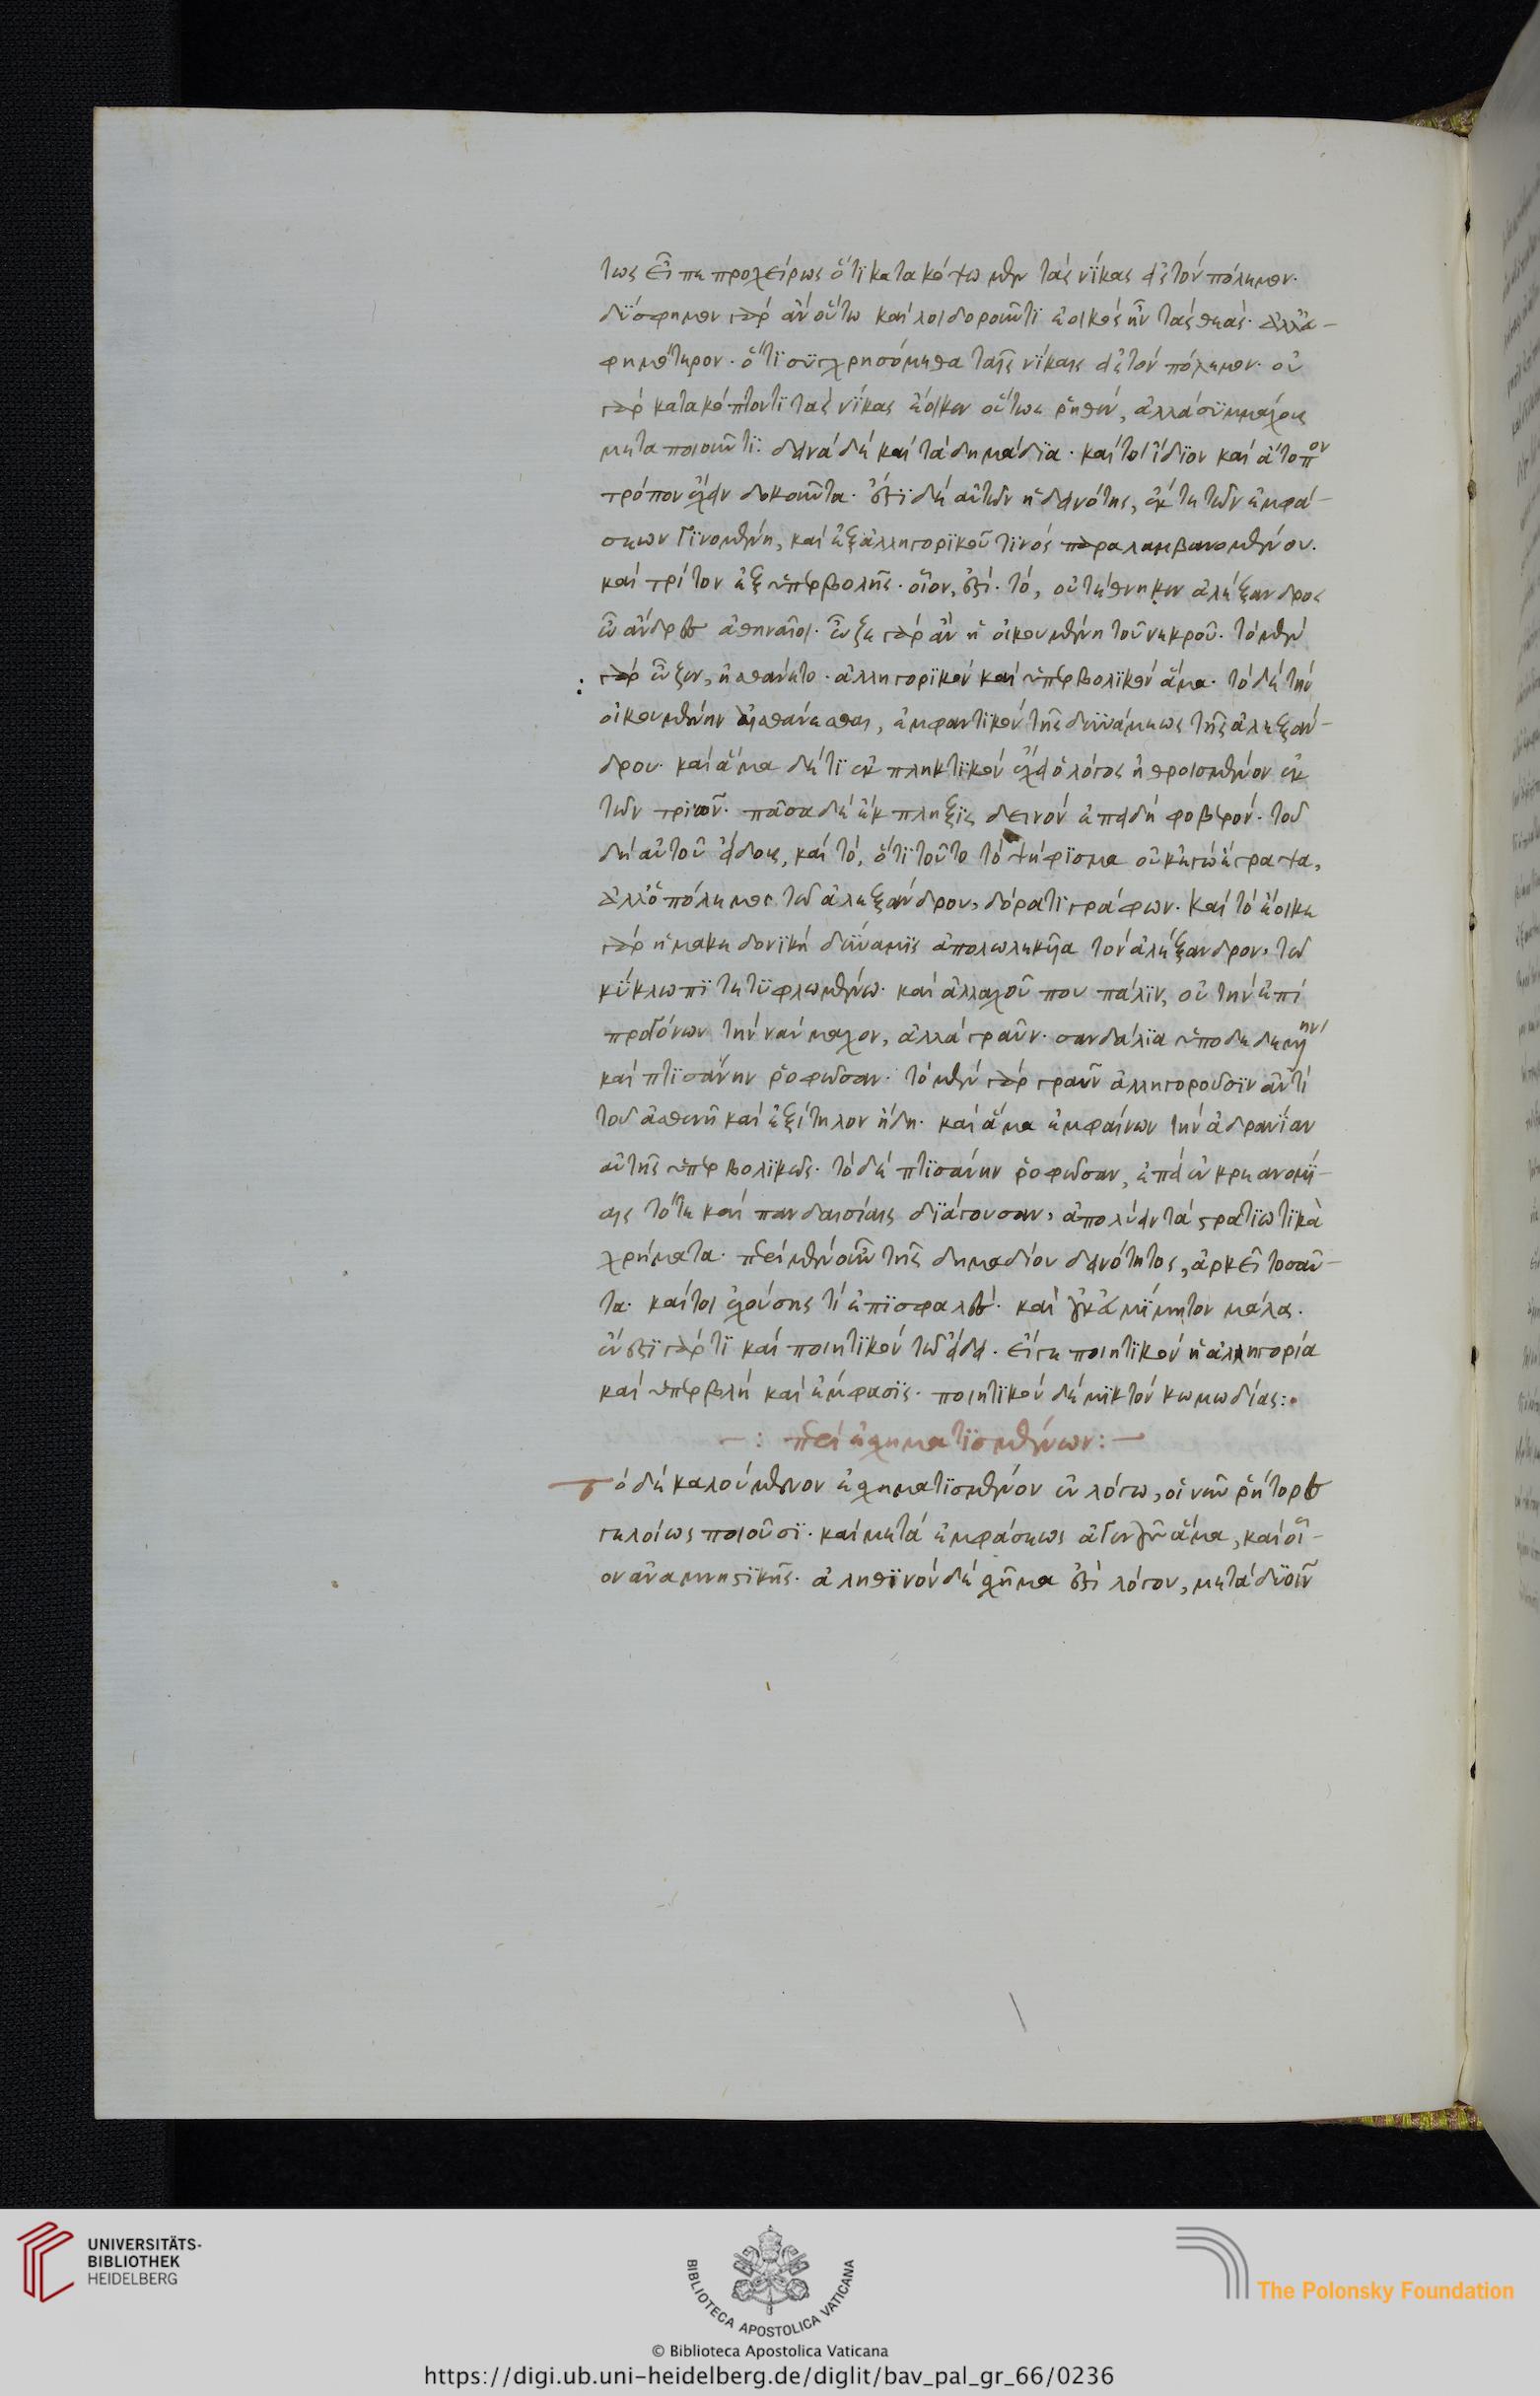 τως εἶπε προχείρως ὅτι κατακόψωμεν τὰς νίκας εἰς τὸν πόλεμον·
δύσφημον γὰρ ἂν οὕτω καὶ λοιδοροῦντι ἐοικὸς ἦν τὰς θεάς· ἀλλ' εὐ-
φημότερον· ὅτι συγχρησόμεθα ταῖς νίκαις εἰς τὸν πόλεμον· οὐ
γὰρ κατακόπτοντι τὰς νίκας ἔοικεν οὕτως ῥηθέν, ἀλλὰ συμμάχους
μεταποιοῦντι· δεινὰ δὲ καὶ τὰ δημάδια· καίτοι ἴδιον καὶ ἄτοπον
τρόπον ἔχειν δοκοῦντα· ἔστι δὲ αὐτῶν ἡ δεινότης, ἔκ τε τῶν ἐμφά-
σεων γινομένη, καὶ ἐξ ἀλληγορικοῦ τινὸς παραλαμβανομένου.
καὶ τρίτον ἐξ ὑπερβολῆς· οἷόν, ἐστι· τό, οὐ τέθνηκεν ἀλέξανδρος
ὦ ἄνδρες ἀθηναῖοι· ὦζε γὰρ ἂν ἡ οἰκουμένη τοῦ νεκροῦ· τὸ μὲν
γὰρ ὦζεν, ἠσθάνετο· ἀλληγορικὸν καὶ ὑπερβολικὸν ἅμα· τὸ δὲ τὴν
οἰκουμένην αἰσθάνεσθαι, ἐμφαντικὸν τῆς δυνάμεως τῆς ἀλεξάν-
δρου· καὶ ἅμα δέ τι ἐκπληκτικὸν ἔχει ὁ λόγος ἠθροισμένον ἐκ
τῶν τριῶν· πᾶσα δὲ ἔκπληξις δεινὸν ἐπειδὴ φοβερόν· τοῦ
δὲ αὐτοῦ εἴδους, καὶ τό, ὅτι τοῦτο τὸ ψήφισμα οὐκ ἐγὼ ἔγραψα,
ἀλλ' ὁ πόλεμος τῶ ἀλεξάνδρου, δόρατι γράφων· καὶ τὸ ἔοικε
γὰρ ἡ μακεδονικὴ δύναμις ἀπολωλεκῦα τὸν ἀλέξανδρον, τῶ
κύκλωπι τετυφλωμένω· καὶ ἀλλαχοῦ που πάλιν, οὐ τὴν ἐπὶ
προγόνων τὴν ναύμαχον, ἀλλὰ γραῦν· σανδάλια ὑποδεδεμένην
καὶ πτισάνην ῥοφῶσαν· τὸ μὲν γὰρ γραῦν ἀλληγοροῦσιν ἀντὶ
τοῦ ἀσθενῆ καὶ ἐξίτηλον ἤδη· καὶ ἅμα ἐμφαίνων τὴν ἀδρανίαν
αὐτῆς ὑπερβολικῶς· τὸ δὲ πτισάνην ῥοφῶσαν, ἐπεὶ ἐν κρεανομί-
αις τότε καὶ πανδαισίαις διάγουσαν, ἀπολύειν τὰ στρατιωτικὰ
χρήματα· περὶ μὲν οὖν τῆς δημαδίου δεινότητος, ἀρκεῖ τοσαῦ-
τα· καίτοι ἐχούσης τὶ ἐπισφαλές· καὶ οὐκ εὐμίμητον μάλα·
ἔνεστι γάρ τι καὶ ποιητικὸν τῶ εἴδει· εἴγε ποιητικὸν ἡ ἀλληγορία
καὶ ὑπερβολὴ καὶ ἔμφασις· ποιητικὸν δὲ μικτὸν κωμωδίας:·
–: περὶ ἐσχηματισμένων: –
τὸ δὲ καλούμενον ἐσχηματισμένον ἐν λόγω, οἱ νῦν ῥήτορες
γελοίως ποιοῦσι· καὶ μετὰ ἐμφάσεως ἀγεννοῦς ἅμα, καὶ οἷ-
ον ἀναμνηστικῆς· ἀληθινὸν δὲ σχῆμα ἐστὶ λόγου, μετὰ δυοῖν
UNIVERSITÄTS-
BIBLIOTHEK
HEIDELBERG
BIBLIOTECA APOSTOLICA VATICANA
The Polonsky Foundation
© Biblioteca Apostolica Vaticana
https://digi.ub.uni-heidelberg.de/diglit/bav_pal_gr_66/0236